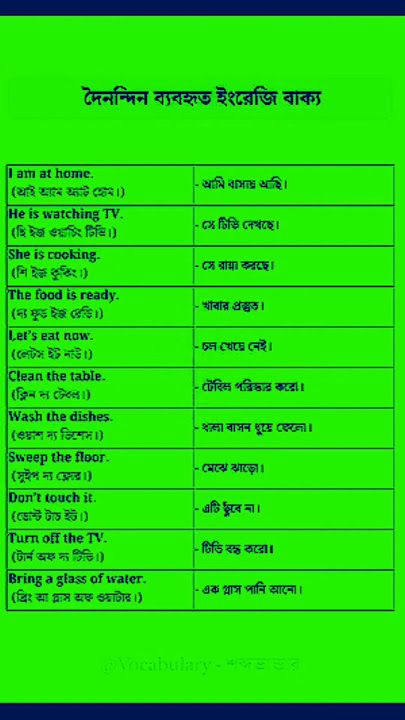 দৈনন্দিন ব্যবহৃত ইংরেজি বাক্য
I am at home.
(আই অ্যাম অ্যাট হোম।)
- আমি বাসায় আছি।
He is watching TV.
(হি ইজ ওয়াচিং টিভি।)
- সে টিভি দেখছে।
She is cooking.
(শি ইজ কুকিং।)
- সে রান্না করছে।
The food is ready.
(দ্য ফুড ইজ রেডি।)
- খাবার প্রস্তুত।
Let's eat now.
(লেটস ইট নাউ।)
- চল খেয়ে নেই।
Clean the table.
(ক্লিন দ্য টেবল।)
- টেবিল পরিষ্কার করো।
Wash the dishes.
(ওয়াশ দ্য ডিশেস।)
- থালা বাসন ধুয়ে ফেলো।
Sweep the floor.
(সুইপ দ্য ফ্লোর।)
- মেঝে ঝাড়ো।
Don't touch it.
(ডোন্ট টাচ ইট।)
- এটি ছুঁবে না।
Turn off the TV.
(টার্ন অফ দ্য টিভি।)
- টিভি বন্ধ করো।
Bring a glass of water.
(ব্রিং আ গ্লাস অফ ওয়াটার।)
- এক গ্লাস পানি আনো।
@Vocabulary - শব্দভান্ডার